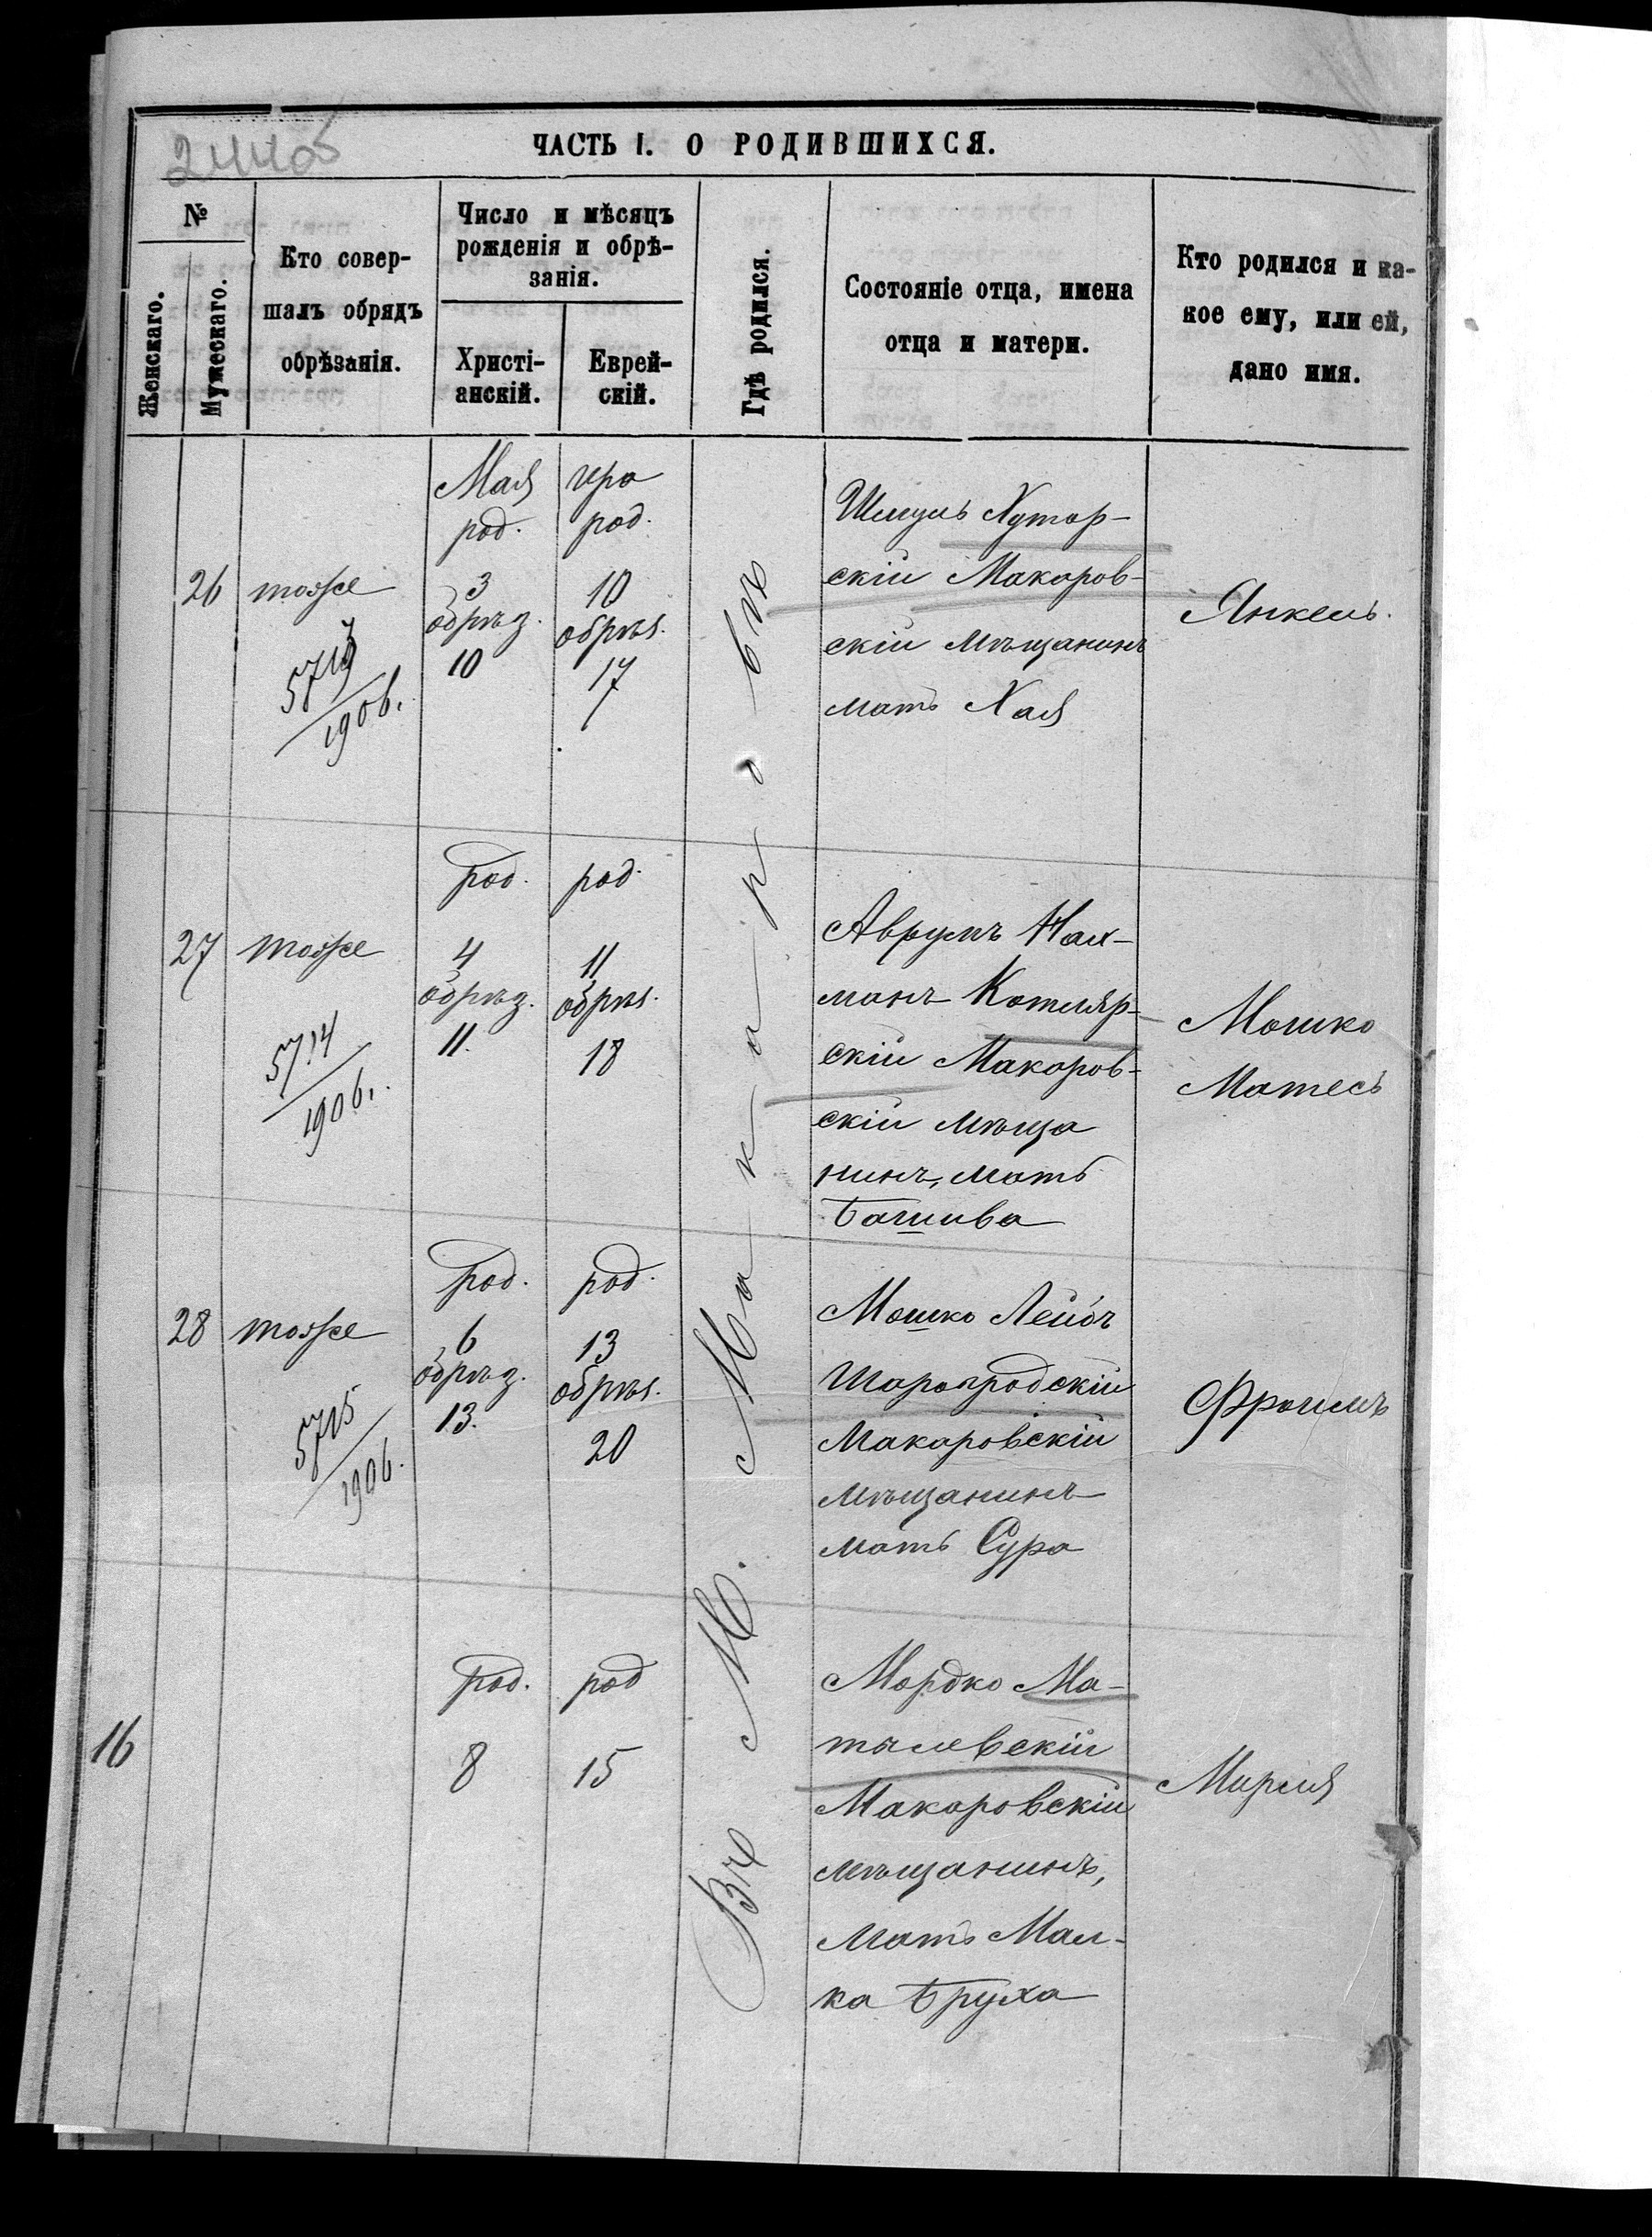 244об
ЧАСТЬ I. О РОДИВШИХСЯ.
№
Женскаго.
Мужескаго.
Кто совер-
шалъ обрядъ
обрѣзанія.
Число и мѣсяцъ
рожденія и обрѣ-
занія.
Христі-
анскій.
Еврей-
скій.
Гдѣ родился.
Состояніе отца, имена
отца и матери.
Кто родился и ка-
кое ему, или ей,
дано имя.
Въ М. Макаровѣ
26
тоже
1906.
Мая
род.
3
обрѣз.
10
Іра
род.
10
обрѣз.
17
Шмуль Хутор-
скій Макаров-
скій мѣщанинъ
мать Хая
Янкель.
27
тоже
5714
1906.
род.
4
обрѣз.
11.
род.
11
обрѣз.
18
Аврумъ Нах-
манъ Котляр-
скій Макаров-
скій мѣща
нинъ, мать
Башива
Мошко
Матесъ
28
тоже
5715
1906.
род.
6
обрѣз.
13.
род.
13
обрѣз.
20
Мошко Лейбъ
Шарогродскій
Макаровскій
мѣщанинъ
мать Сура
Фроимъ
16
род.
8
род
15
Мордко Ма-
тылевскій
Макаровскій
мѣщанинъ,
мать Мал-
ка Бруха
Мирля